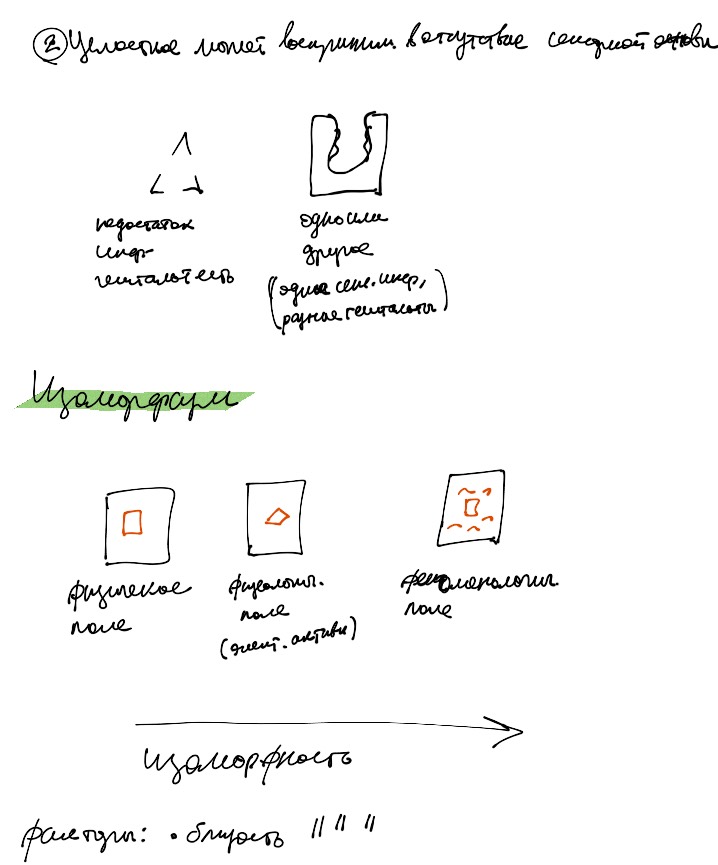 ② Целостное может восприним. в отсутствие сенсорной основы
недостаток
инф-
гештальт есть
одно или
другое
(одна сенс. инфр,
разные гештальты)
Изоморфизм
физическое
поле
физиологич.
поле
(элект. активн)
феноменологич
поле
Изоморфность
факторы: • близость || || ||